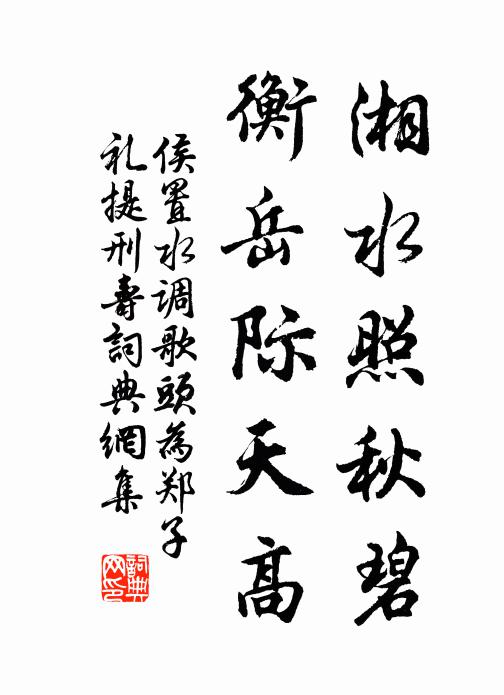 湘水照秋碧
衡岳际天高
侯置水调歌頭為郑子
礼提刑壽詞典網集
詞典网印